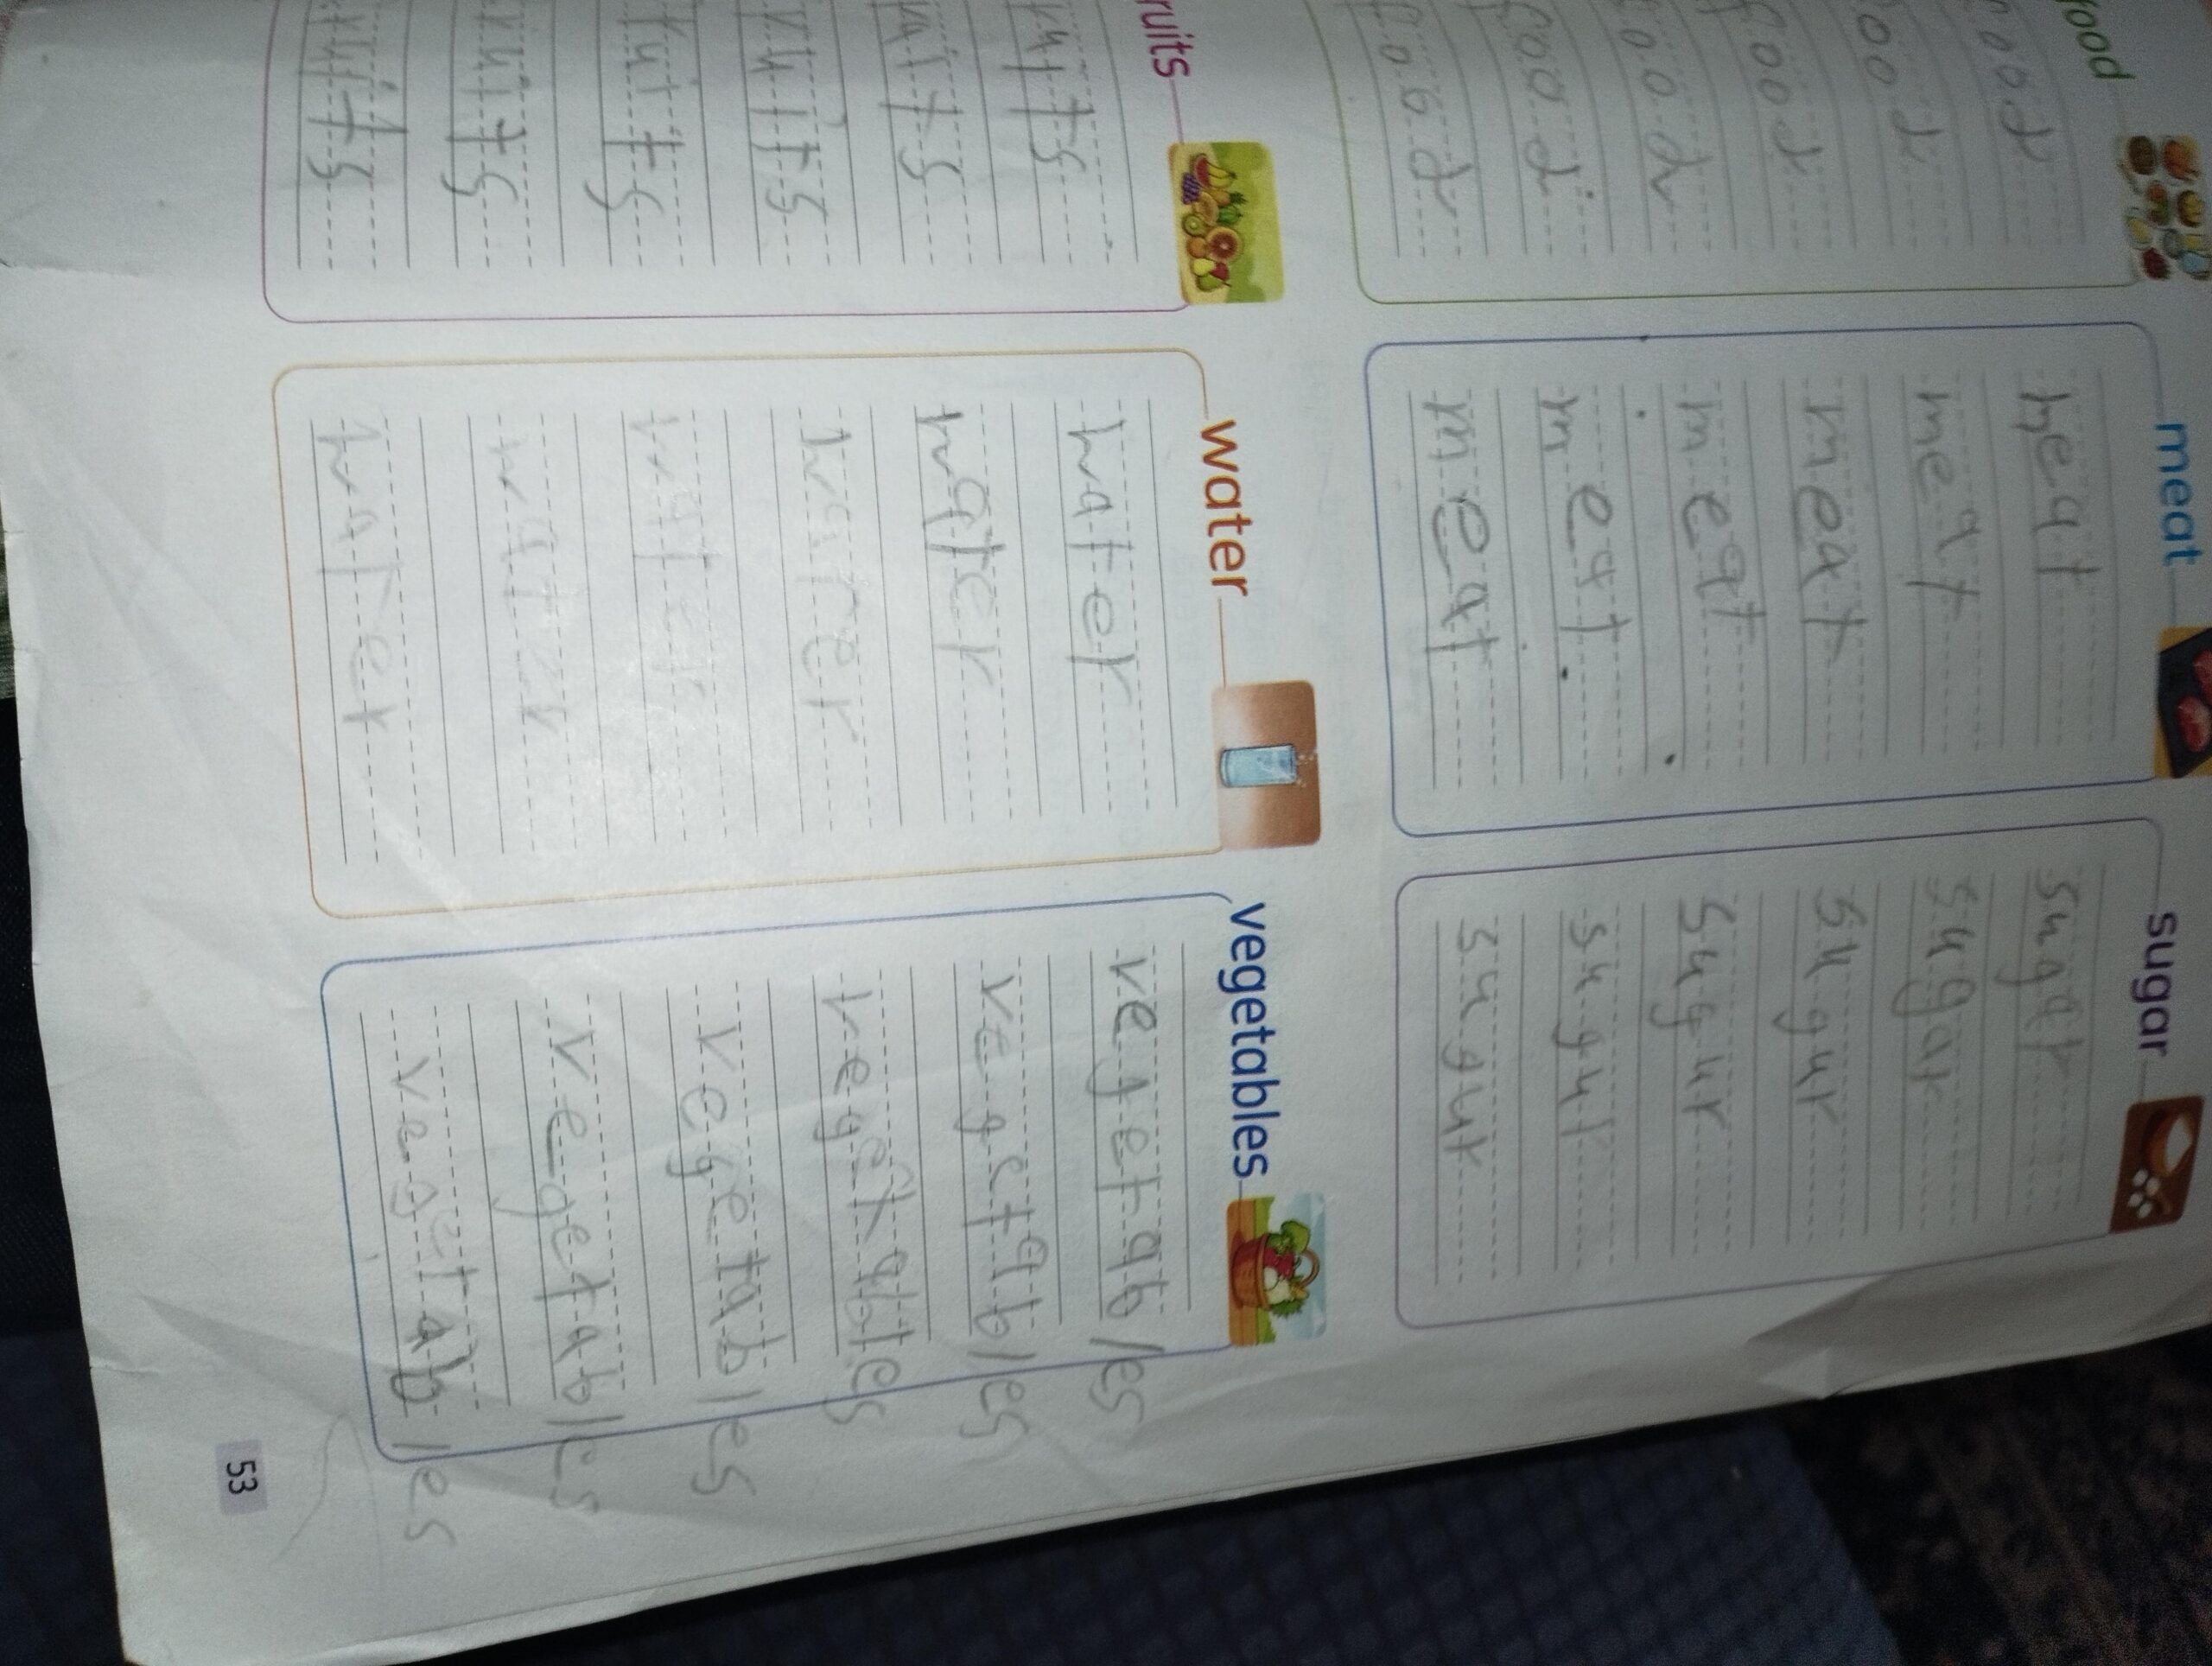 food
food
ood
food
ood
food
food
meat
meat
meat
meat
meat
meat
meat
sugar
sugar
sugar
sugur
sugur
sugur
sugur
ruits
ruits
ruits
ruits
ruits
ruits
ruits
water
water
water
water
water
water
vegetables
vegetables
vegetables
vegetables
vegetables
vegetables
vegetables
53